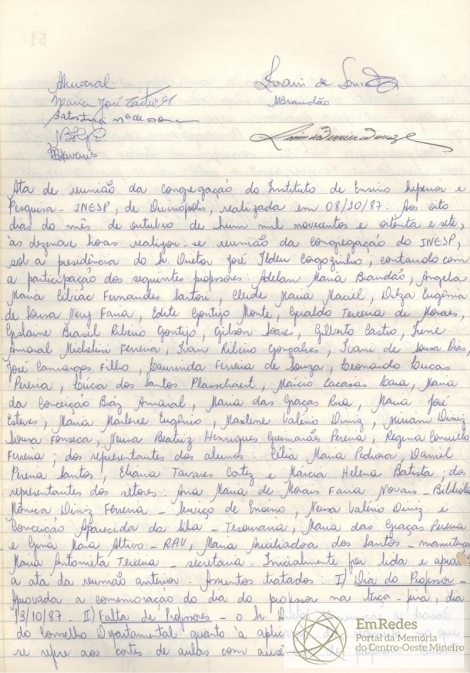 Amaral
Maria José
Ivani de Sousa
MBrandão
Ata de reunião da congregação do Instituto de Ensino Superior e
Pesquisa - INESP, de Divinópolis, realizada em 08/10/87. Aos oito
dias do mês de outubro de hum mil novecentos e oitenta e sete,
às dezenove horas realizou-se reunião da congregação do INESP,
sob a presidência do Sr. Diretor José Ildeu Gogozinho, contando com
a participação dos seguintes professores: Adelan Maria Brandão, Angela
Maria Fernandes Sartori, Cleide Maria Maciel, Dilza Eugênia
de Sousa Nery Faria, Edite Gontijo Monte, Geraldo Teixeira de Morais,
Gislaine Brasil Ribeiro Gontijo, Gilson Soares, Gilberto Castro, Irene
Amaral Michelini Ferreira, Ivan Ribeiro Gonçalves, Ivani de Sousa Dias,
José Camargos Filho, Laurinda Ferreira de Souza, Leonardo Lucas
Pereira, Lúcia dos Santos Plasschaert, Márcio Lacerda, Maria
da Conceição Amaral, Maria das Graças Rua, Maria José
Esteves, Maria Marlene Eugênio, Marilene Valério Diniz, Miriam Diniz
Sousa Fonseca, Neusa Beatriz Henriques Guimarães Pereira, Regina Consuelo
Ferreira; dos representantes dos alunos: Célia Maria Pedrosa, Daniel
Pereira Santos, Eliana Tavares e Márcia Helena Batista; dos
representantes dos setores: Ana Maria de Morais Faria Novais - Biblioteca
Mônica Diniz Ferreira - serviço de Ensino, Neusa Valério Diniz e
Conceição Aparecida da Silva - Tesouraria, Maria das Graças Pereira
e Maria Altivo - RAV, Maria Auxiliadora dos Santos - manutenção
Maria Antonieta Teixeira - secretaria. Inicialmente foi lida e
a ata da reunião anterior. Assuntos tratados: I) Dia do Professor -
Aprovada a comemoração do dia do professor na terça-feira, dia
13/10/87. II) Falta de Professores - o Sr.
do Conselho Departamental quanto à
se refere aos cortes de aulas com
EmRedes
Portal da Memória
do Centro-Oeste Mineiro